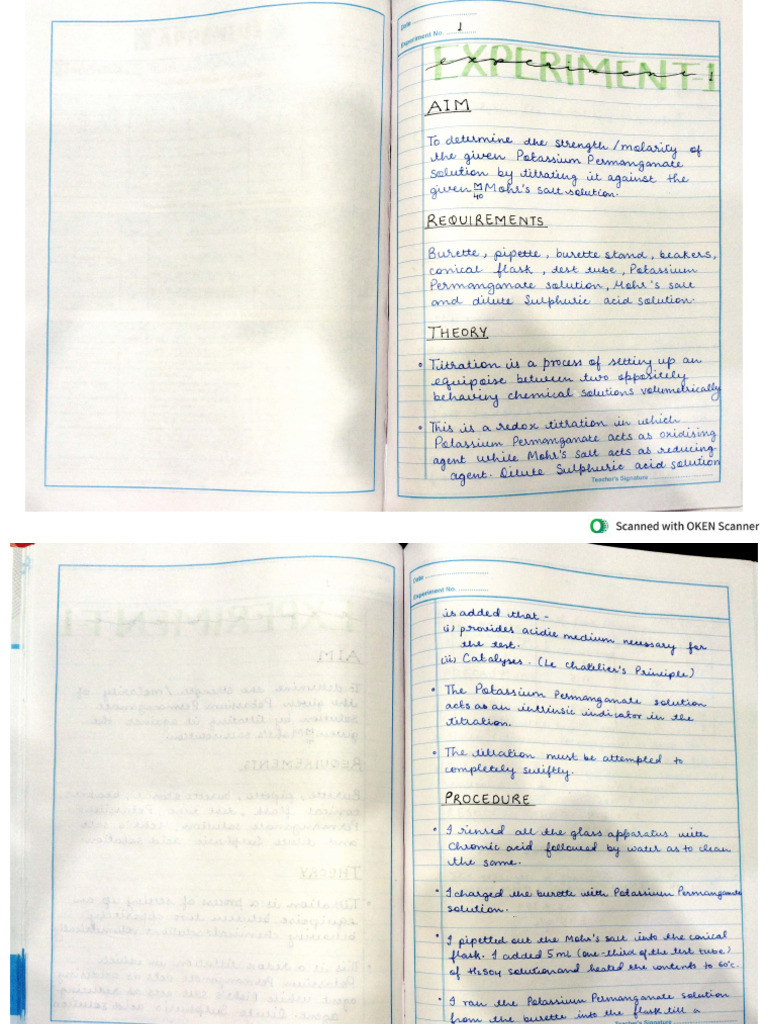 Date
Experiment No. 1
EXPERIMENT-1
experiment
AIM
To determine the strength/molarity of
the given Potassium Permanganate
solution by titrating it against the
given M/40 Mohr's salt solution.
REQUIREMENTS
Burette, pipette, burette stand, beakers,
conical flask, test tube, Potassium
Permanganate solution, Mohr's salt
and dilute Sulphuric acid solution.
THEORY
• Titration is a process of setting up an
equipoise between two oppositely
behaving chemical solutions volumetrically
• This is a redox titration in which
Potassium Permanganate acts as oxidising
agent while Mohr's Salt acts as reducing
agent. Dilute Sulphuric acid solution
Teacher's Signature
Scanned with OKEN Scanner
Date
Experiment No.
is added that -
(i) provides acidic medium necessary for
the test.
(ii) Catalyses. (Le Chatelier's Principle)
• The Potassium Permanganate solution
acts as an intrinsic indicator in the
titration.
• The titration must be attempted to
completely swiftly.
PROCEDURE
• I rinsed all the glass apparatus with
Chromic acid followed by water as to clean
the same.
• I charged the burette with Potassium Permanganate
solution.
• I pipetted out the Mohr's salt into the conical
flask. I added 5 mL (one-third of the test tube)
of H2SO4 solution and heated the contents to 60°c.
• I ran the Potassium Permanganate solution
from the burette into the flask till a
Teacher's Signature